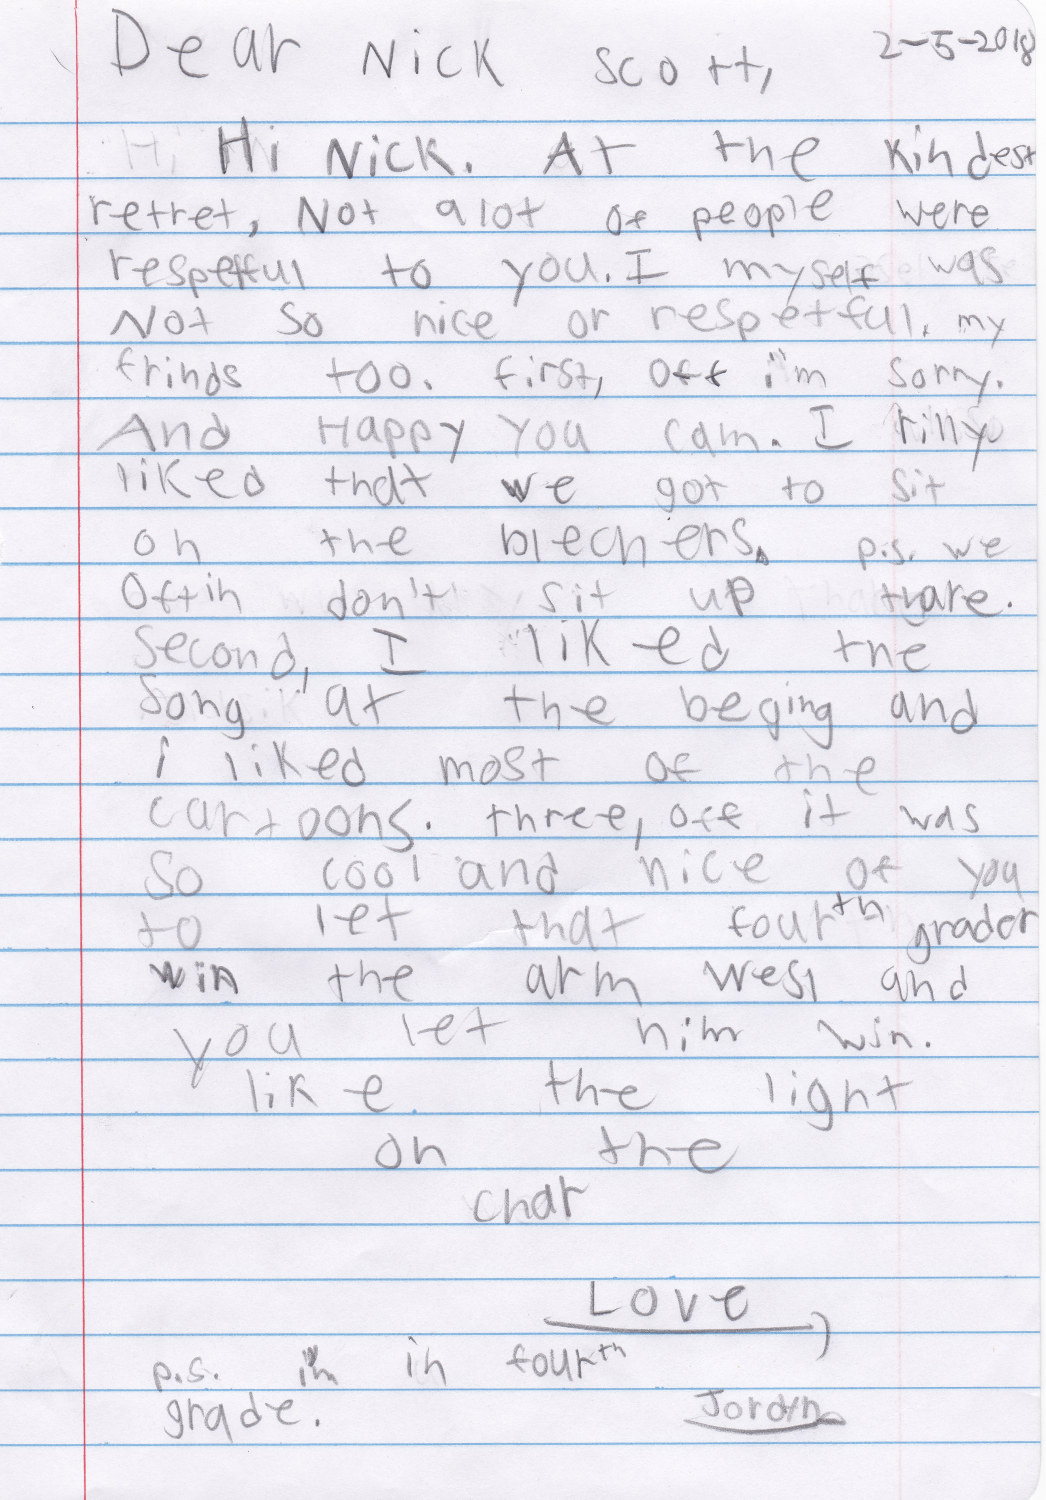 Dear Nick Scott, 2-5-2018
Hi Nick. At the kindest
retret, Not alot of people were
respetful to you. I myself was
Not so nice or respetful. my
frinds too. first, off i'm sorry.
And Happy you cam. I rilly
liked that we got to sit
on the blechers. p.s. we
Oftin don't sit up thare.
Second, I liked the
Song at the beging and
i liked most of the
cartoons. three, off it was
So cool and nice of you
to let that fourth grader
win the arm wesl and
you let him win.
like the light
on the
char
Love,
p.s. i'm in fourth
grade. Jordyn